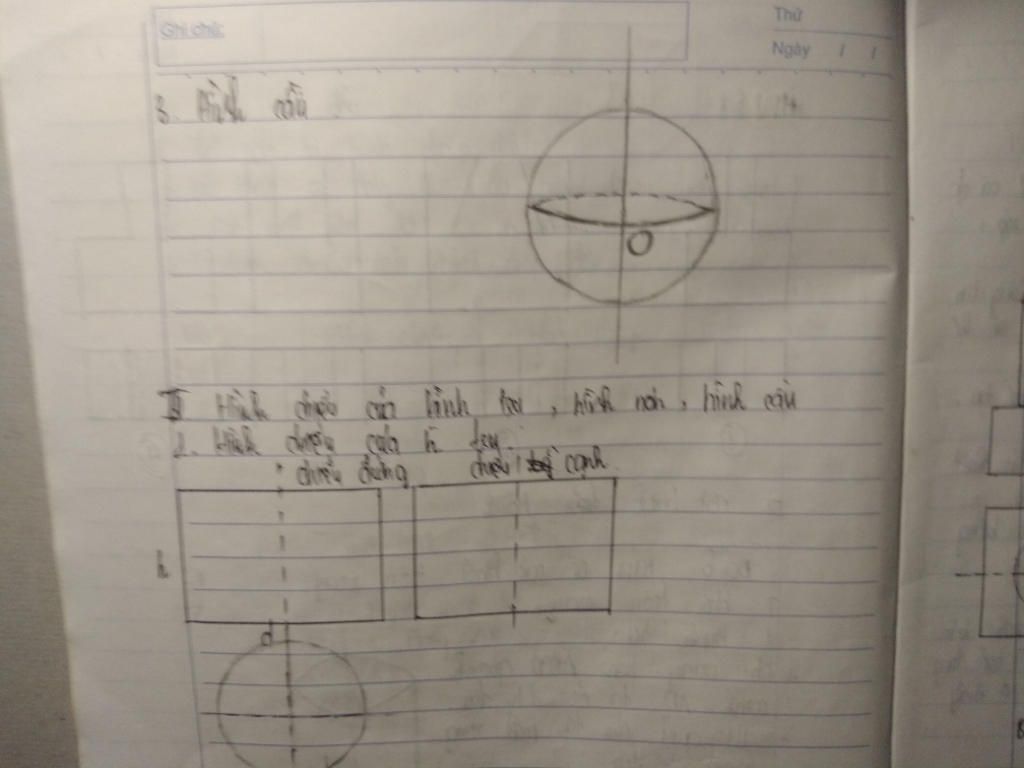 Ghi chú:
Thứ
Ngày / /
3. Hình cầu
O
II Hình chiếu của hình trụ, hình nón, hình cầu
1. Hình chiếu của h trụ
chiếu đứng
chiếu cạnh
h
d